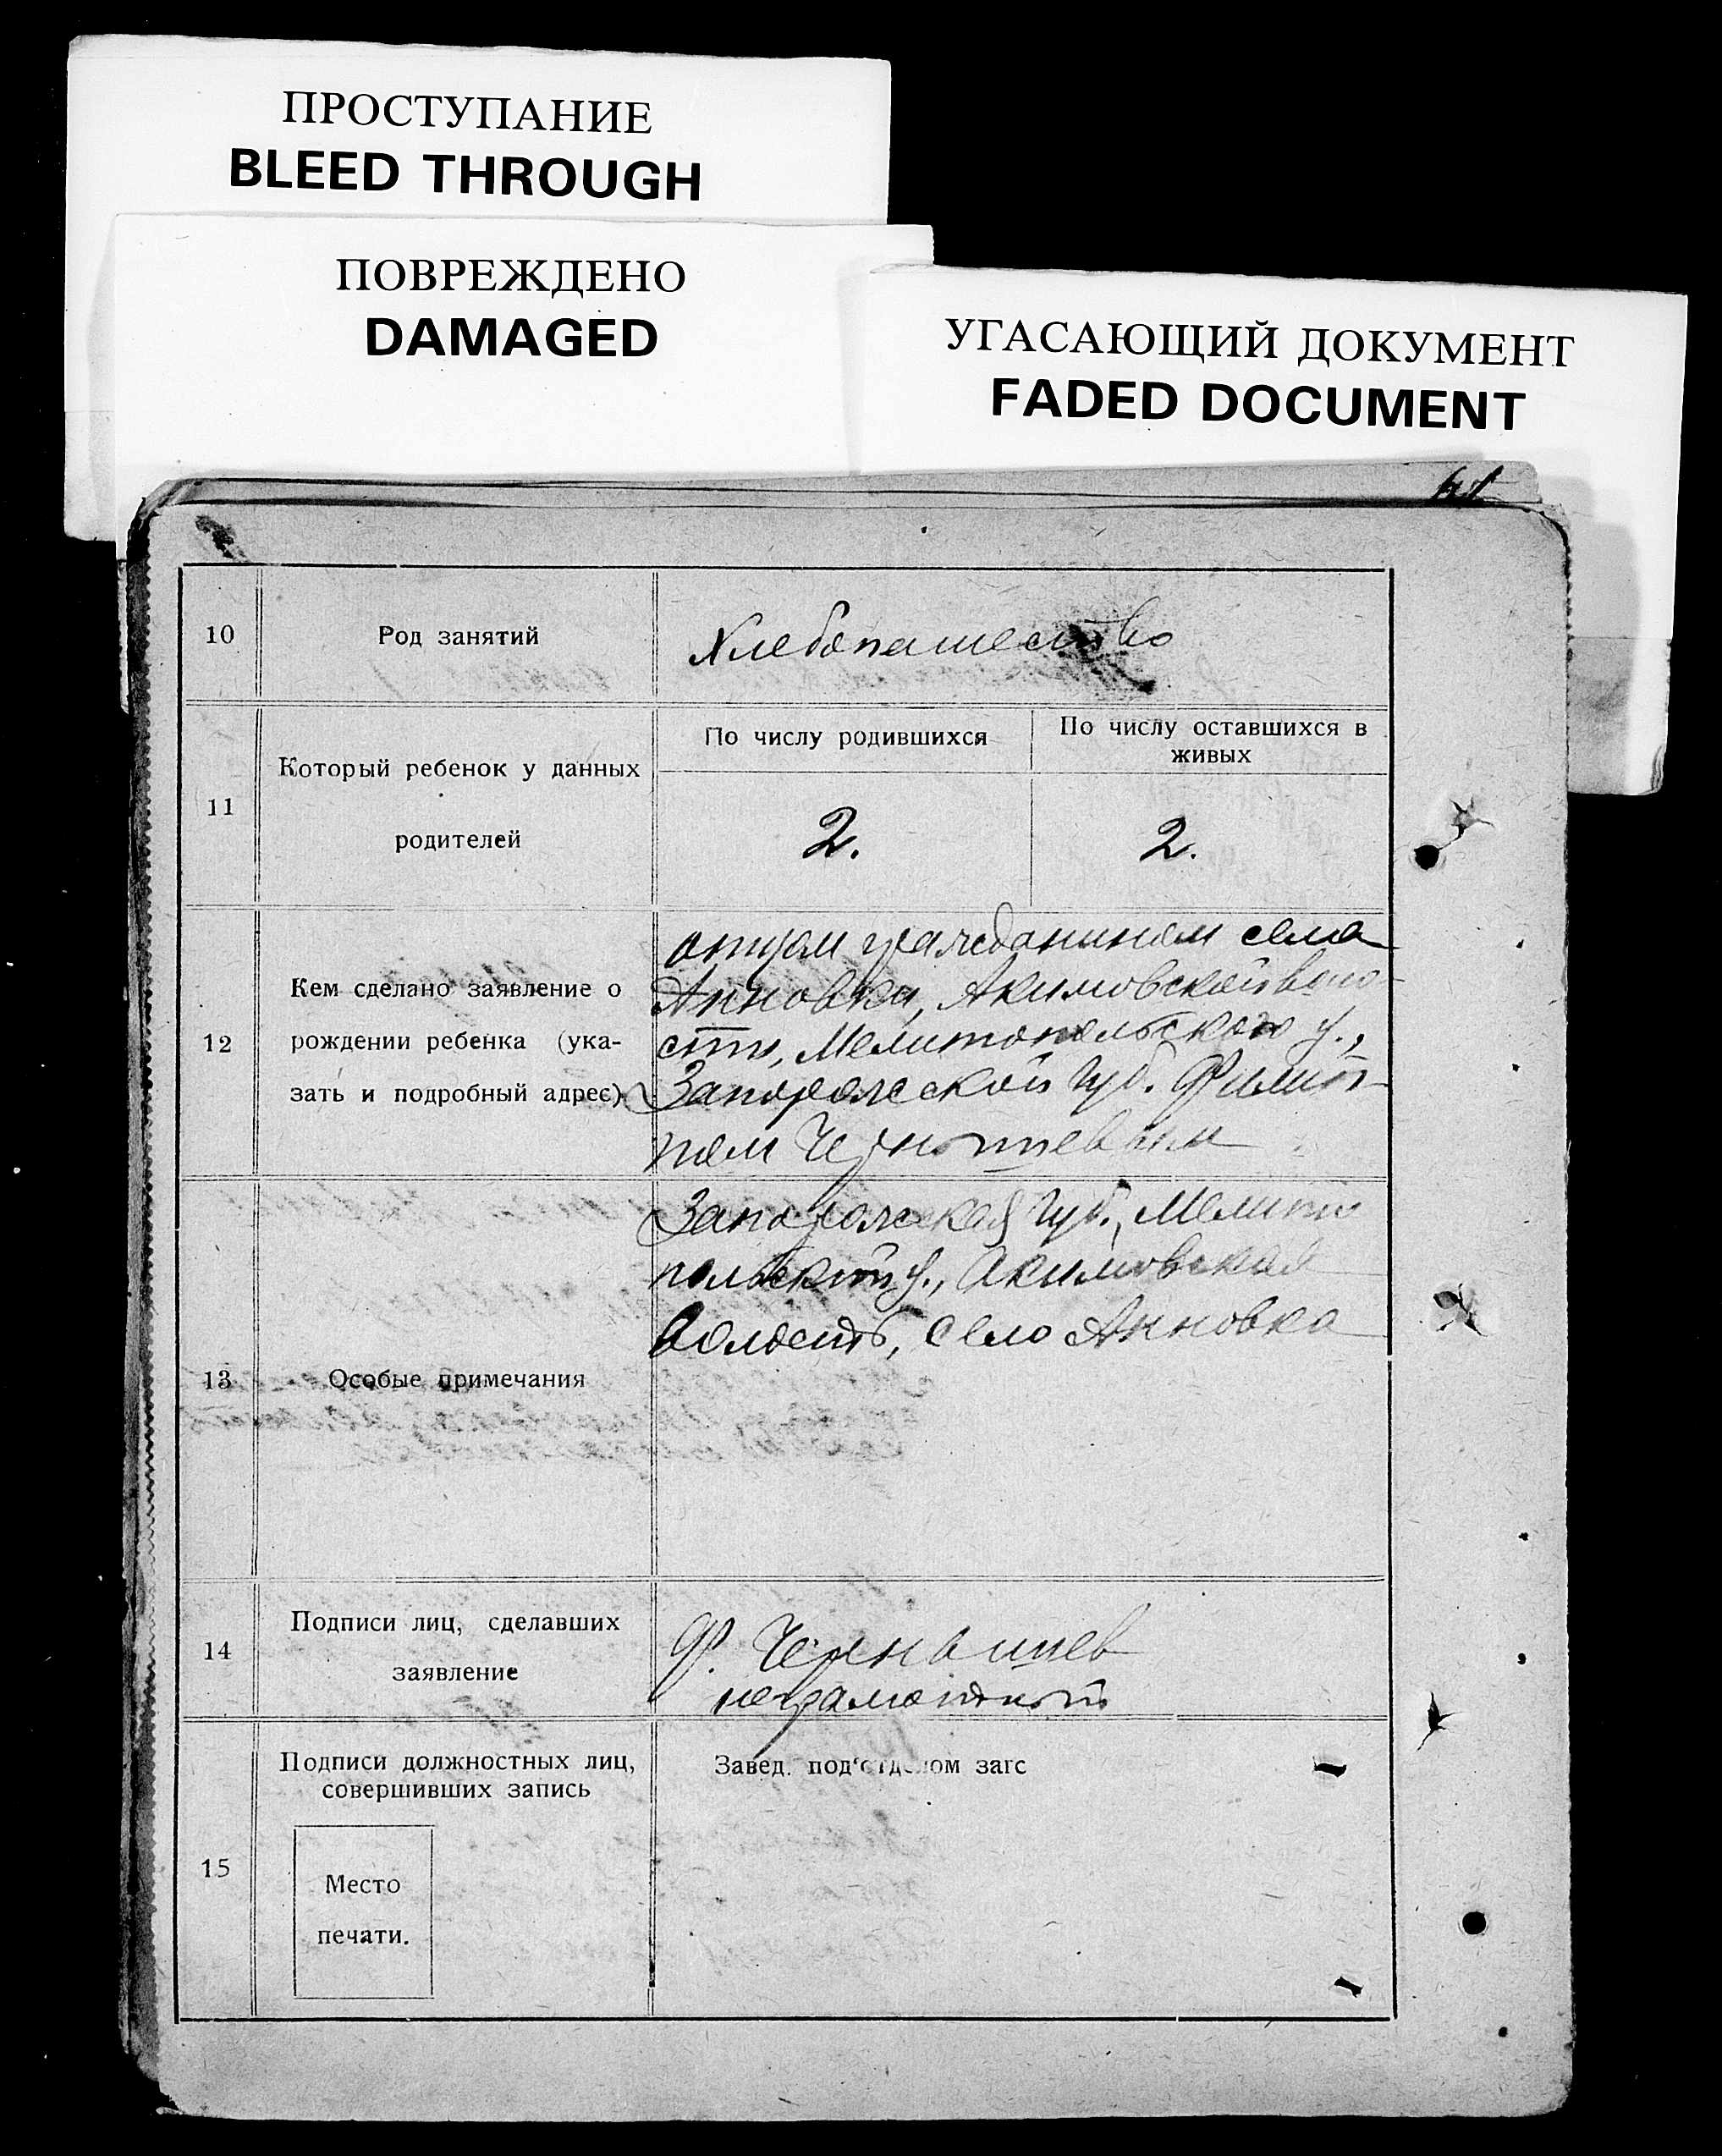 ПРОСТУПАНИЕ
BLEED THROUGH
ПОВРЕЖДЕНО
DAMAGED
УГАСАЮЩИЙ ДОКУМЕНТ
FADED DOCUMENT
10 Род занятий Хлебопашество
11 Который ребенок у данных родителей
По числу родившихся
По числу оставшихся в
живых
2. 2.
12 Кем сделано заявление о
рождении ребенка (ука-
зать и подробный адрес)
отцом гражданином села
Анновки, Акимовской воло-
сти, Мелитопольского у.,
Запорожской губ. Филип-
пом Чернышевым
13 Особые примечания
Запорожская губ., Мелито
польский у., Акимовская
волость, село Анновка
14 Подписи лиц, сделавших
заявление
Ф. Чернышев
неграмотный
15 Подписи должностных лиц,
совершивших запись
Завед. под'отделом загс
Место
печати.